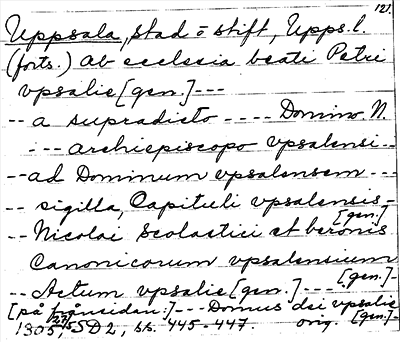 121.
Uppsala, stad o stift, Upps.l.
(forts.) Ab ecclesia beate Petri
vpsalie [gen.] ---
-- a supradicto ---- Domino N.
--- archiepiscopo vpsalensi --
-- ad Dominum vpsalensem ---
-- sigilla, Capituli vpsalensis - [gen.]
-- Nicolai Scolastici et beronis
Canonicorum vpsalensium [gen.] -
-- Actum vpsalie [gen.] ----
[på frånsidan:] --- Domus dei vpsalie [gen.] -
1305 27/5, SD 2, ss. 445-447. orig.